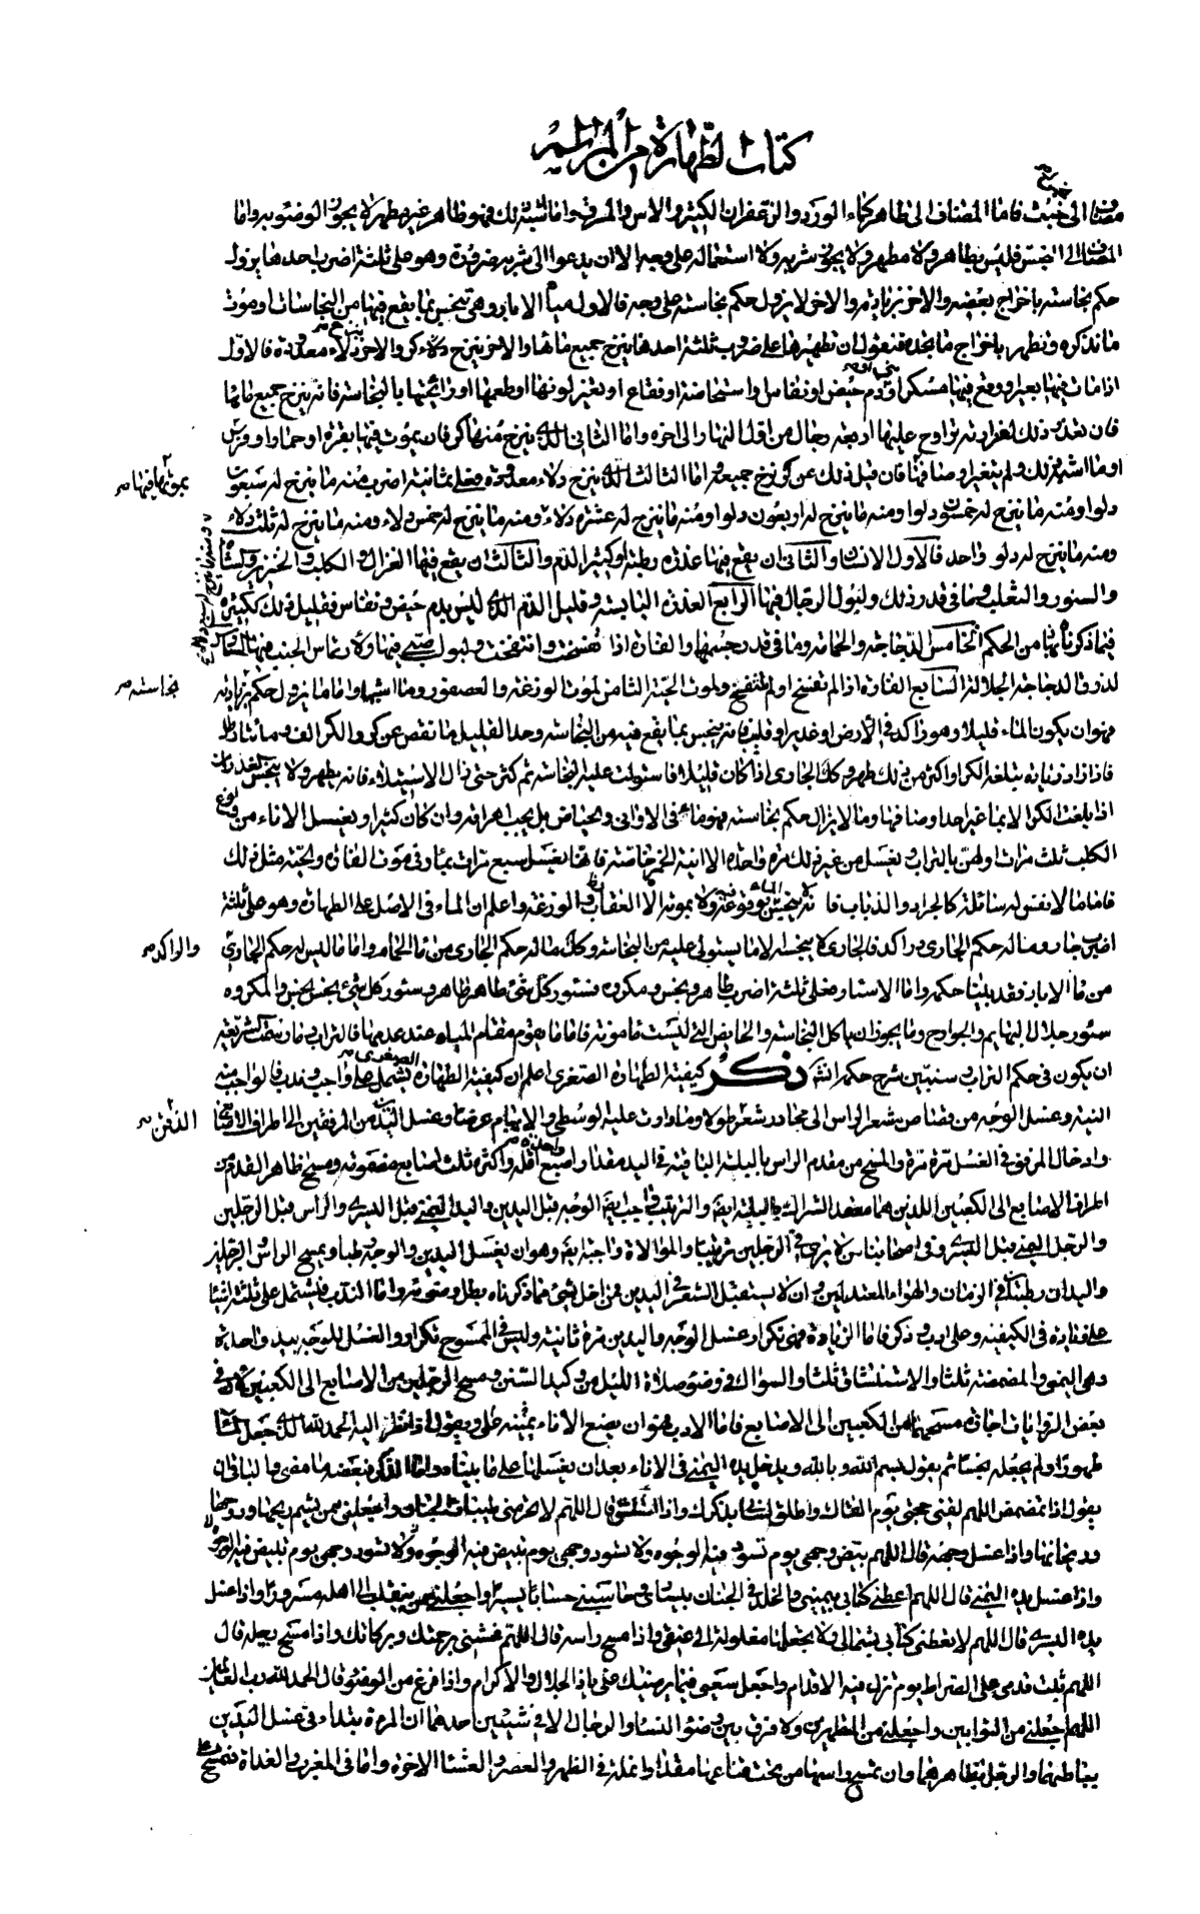 كتاب الطهارة من المراسم
مضاف الى نجس فاما المضاف الى طاهر كماء الورد والزعفران الكثير والاس والمرق وما اشبه ذلك فهو طاهر غير مطهر لا يجوز الوضوء به واما
المضاف الى النجس فليس بطاهر ولا مطهر ولا يجوز شربه ولا استعماله على وجه الا ان يدعوا الى شربه ضرورة وهو على ثلثة اضرب احدها يزول
حكم نجاسته باخراج بعضه والاخر بزيادته والاخر لا يزول حكم نجاسته على وجه فالاول مياه الابار وهى تنجس بما يقع فيها من النجاسات او موت
ما نذكره وتطهر باخراج ما نحده فنقول ان تطهيرها على ضروب ثلثة احدها ينزح جميع مائها والاخر ينزح كر والاخر دلاء معدودة فالاول
اذا مات فيها بعير او وقع فيها مسكر او دم حيض او نفاس او استحاضة او فقاع او تغير لونها او طعمها او رائحتها بالنجاسة فانه ينزح جميع مائها
فان تعذر ذلك لغزارته تراوح عليها اربعة رجال من اول النهار الى اخره واما الثانى الذى ينزح منها كر فان يموت فيها بقرة او حمار او فرس
او ما اشبه ذلك ولم يتغير اوصافها فان قبل ذلك عن كر نزح جميعه واما الثالث الذى ينزح دلاء معدودة فعلى ثمانية اضرب منه ما ينزح له سبعون
بموتها فيها
دلوا ومنه ما ينزح له خمسون دلوا ومنه ما ينزح له اربعون دلوا ومنه ما ينزح له عشرة دلاء ومنه ما ينزح له خمس دلاء ومنه ما ينزح له ثلث دلاء
ومنه ما ينزح له دلو واحد فالاول الانسان والثانى ان يقع فيها عذرة رطبة او كثير الدم والثالث ان يقع فيها الغزال والكلب والخنزير والشاة
ومنه ما ينزح له سبع دلاء
والسنور والثعلب وما فى قدر ذلك ولبول الرجال فيها الرابع العذرة اليابسة وقليل الدم الذى ليس بدم حيض ونفاس فقليل ذلك ككثيره
فيما ذكرناه من الحكم الخامس الدجاجة والحمامة وما فى قدر جسمها والفارة اذا تفسخت وانتفخت ولبول صبى فيها ولارتماس الجنب فيها السادس
لذرق الدجاجة الجلالة السابع الفارة اذا لم تفسخ او لم تنتفخ ولموت الحية الثامن لموت الوزغة والعصفور وما اشبهها واما ما يزول حكم بزيادته
نجاسته
فهو ان يكون الماء قليلا وهو راكد فى الارض او غدير او قليب فانه ينجس بما يقع فيه من النجاسة وحد القليل ما نقص عن كر والكر الف ومائتا رطل
فاذا زاد زيادة يبلغه الكر او اكثر من ذلك طهر وكذلك الجارى اذا كان قليلا فاستولت عليه النجاسة ثم كثر حتى زال الاستيلاء فانه يطهر ولا ينجس الغدران
اذا بلغت الكر الا بما غير احد اوصافها وما لا يزال حكم نجاسته فهو ماء فى الاوانى والحياض بل يجب اهراقه وان كان كثيرا ويغسل الاناء من ولوغ
الكلب ثلث مرات اولهن بالتراب ويغسل من غير ذلك مرة واحدة الا انية الخمر خاصة فانها يغسل سبع مرات بماء وفى موت الفارة والحية مثل ذلك
فاما ما لا نفس له سائلة كالجراد والذباب فانه لا ينجس الماء بوقوعه فيه ولا بموته الا العقارب والوزغة واعلم ان الماء فى الاصل على الطهارة وهو على ثلثة
اضرب جار وماله حكم الجارى وراكد فالجارى لا ينجسه الا ما يستولى عليه من النجاسة وكذلك ماله حكم الجارى من ماء الحمام واما ما ليس له حكم الجارى
والراكد
من ماء الابار فقد بينا حكمه واما الاسئار فعلى ثلثة اضرب طاهر ونجس ومكروه فسئور كل شئ طاهر طاهر وسئور كل شئ نجس نجس والمكروه
سئور جلال البهايم والجوارح وما يجوز ان ياكل النجاسة والحايض التى ليست مامونة فاما ما يقوم مقام المياه عند عدمها فالتراب وما وشحت الشريعة
ان يكون فى حكم التراب وسنبين شرح حكمه انشاء الله ذكر كيفية الطهارة الصغرى اعلم ان كيفية الطهارة الصغرى يشتمل على واجب وندب فالواجب منه
النية وغسل الوجه من قصاص شعر الراس الى محادر شعر طولا وما دارت عليه الوسطى والابهام عرضا وغسل اليد من المرفقين الى اطراف الاصابع
الذقن
وادخال المرفق فى الغسل مرة مرة والمسح من مقدم الراس بالبلة الباقية فى اليد مقدار اصبع واحدة اقله واكثره ثلث اصابع مضمومة ومسح ظاهر القدم من
اطراف الاصابع الى الكعبين اللذين هما معقد الشراك بالبلة ايضا والترتيب واجب ايضا الوجه قبل اليدين واليد اليمنى قبل اليسرى والراس قبل الرجلين
والرجل اليمنى قبل اليسرى وفى اصحابنا من لا يرى فى الرجلين ترتيبا والموالاة واجبة ايضا وهو ان يغسل اليدين والوجه رطب ويمسح الراس والرجلين
واليدان رطبتان فى الزمان والهواء المعتدلين وان لا يستقبل الشعر فى اليدين فمن اخل بشئ مما ذكرناه بطل وضوئه واما الندب فيشتمل على ثلثة اشياء
على زيادة فى الكيفية وعلى ادب وذكر فاما الزيادة فهى تكرار غسل الوجه واليدين مرة ثانية وليس فى الممسوح تكرار والغسل للوجه بيد واحدة
وهى اليمنى والمضمضة ثلثا والاستنشاق ثلثا والسواك فى وضوء صلاة الليل من وكيد السنن ومسح الرجلين من الاصابع الى الكعبين وفى
بعض الروايات اجازة مسحهما من الكعبين الى الاصابع فاما الادب فهو ان يضع الاناء يمينه ويقول اذا نظر اليه الحمد لله الذى جعل الماء
طهورا ولم يجعله نجسا ثم يقول بسم الله وبالله ويدخل يده اليمنى فى الاناء بعد ان يغسلها على ما بيناه واما الذكر فبعضه ما مضى والباقى ان
يقول اذا تمضمض اللهم لقنى حجتى يوم القاك واطلق لسانى بذكرك واذا استنشق قال اللهم لا تحرمنى طيبات الجنان واجعلنى ممن يشم ريحها وروحها
وريحانها واذا غسل وجهه قال اللهم بيض وجهى يوم تسود فيه الوجوه ولا تسود وجهى يوم تبيض فيه الوجوه
واذا غسل يده اليمنى قال اللهم اعطنى كتابى بيمينى والخلد فى الجنان بيسارى وحاسبنى حسابا يسيرا واجعلنى ممن ينقلب الى اهله مسرورا واذا غسل
يده اليسرى قال اللهم لا تعطنى كتابى بشمالى ولا تجعلها مغلولة الى عنقى واذا مسح راسه قال اللهم غشنى برحمتك وبركاتك واذا مسح رجله قال
اللهم ثبت قدمى على الصراط يوم تزل فيه الاقدام واجعل سعيى فيما يرضيك عنى يا ذا الجلال والاكرام واذا فرغ من الوضوء قال الحمد لله رب العالمين
اللهم اجعلنى من التوابين واجعلنى من المتطهرين ولا فرق بين وضوء النساء والرجال الا فى شيئين احدهما ان المرءة يبتداء فى غسل اليدين
بباطنهما والرجل بظاهرهما وان تمسح راسها من تحت قناعها مقدار انملة فى الظهر والعصر والعشاء الاخرة واما فى المغرب والغداة فتمسح